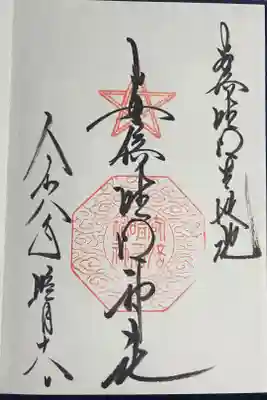 安倍晴明生誕地
安倍晴明神社
令和八年 睦月十八日